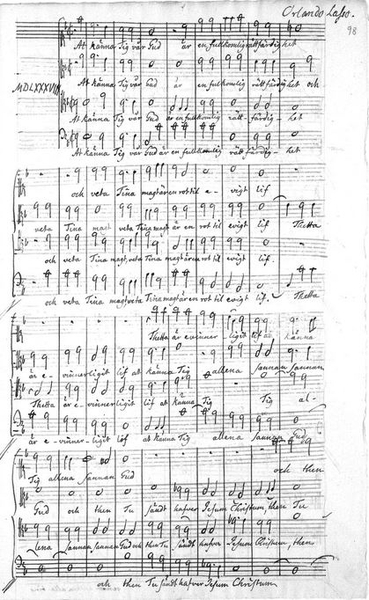 Orlando Lasso.
98
At känna Tig vår Gud är en fullkomlig rättfärdighet
MDLXXXVII
At känna Tig vår Gud är en fullkomlig rättfärdighet och
At känna Tig vår Gud är en fullkomlig rätt-färdig-het
At känna Tig vår Gud är en fullkomlig rättfärdig-het
och veta Tina magt är en rot til e-vigt lif
veta Tina magt veta Tina magt är en rot til evigt lif Thetta
och veta Tina magt, veta Tina magt är en rot til evigt lif.
och veta Tina magt veta Tina magt är en rot til evigt lif. Thetta
Thetta är evinner ligit lif at känna
är e-vinnerligit lif at känna Tig allena sannan sannan
Thetta är e-vinnerligit lif at känna Tig Tig al-
är e-vinner-ligit lif at känna Tig allena sannan Gud
Tig allena sannan Gud och then
Gud och then Tu sändt hafver Jesum Christum, then Tu
lena sannan sannan Gud och then Tu sändt hafver Jesum Christum, then
och then Tu sändt hafver Jesum Christum